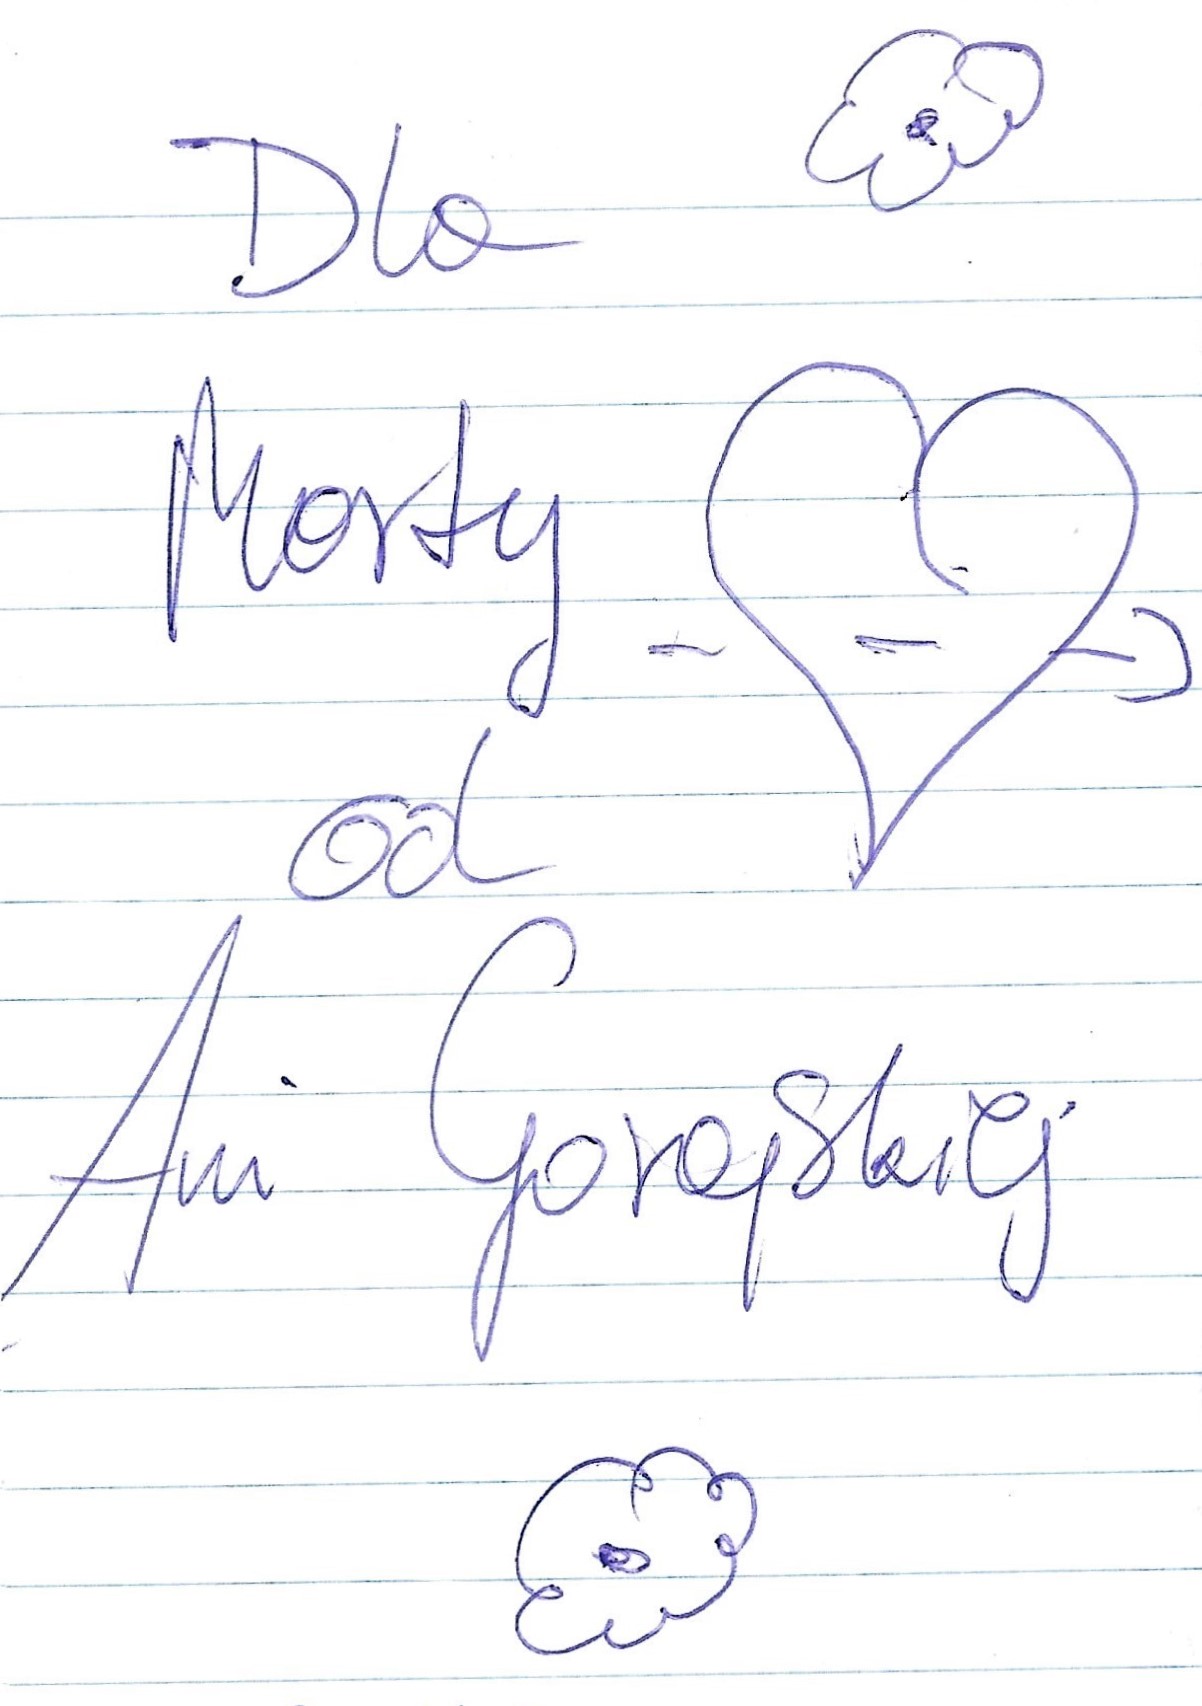 Dla
Marty
od
Ani Gorajskiej